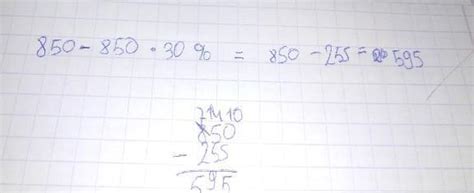 850 - 850 · 30 % = 850 - 255 = 595
7 14 10
850
- 255
595